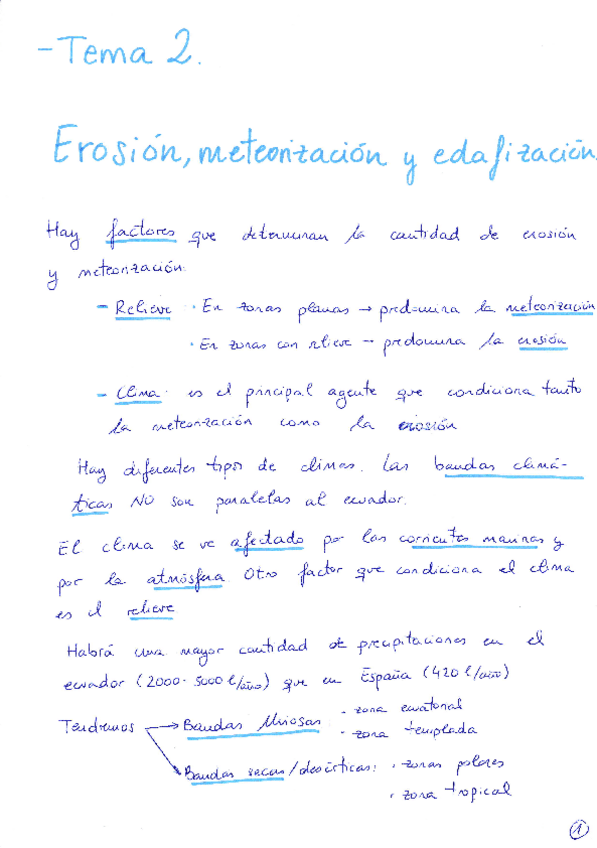 - Tema 2.
Erosión, meteorización y edafización
Hay factores que determinan la cantidad de erosión
y meteorización:
- Relieve · En zonas planas → predomina la meteorización
· En zonas con relieve → predomina la erosión
- Clima: es el principal agente que condiciona tanto
la meteorización como la erosión
Hay diferentes tipos de climas. Las bandas climá-
ticas NO son paralelas al ecuador.
El clima se ve afectado por las corrientes marinas y
por la atmósfera Otro factor que condiciona el clima
es el relieve
Habrá una mayor cantidad de precipitaciones en el
ecuador (2000-5000 l/año) que en España (420 l/año)
Tendremos → Bandas lluviosas · zona ecuatorial
· zona templada
Bandas secas/desérticas: · zonas polares
· zona tropical
1